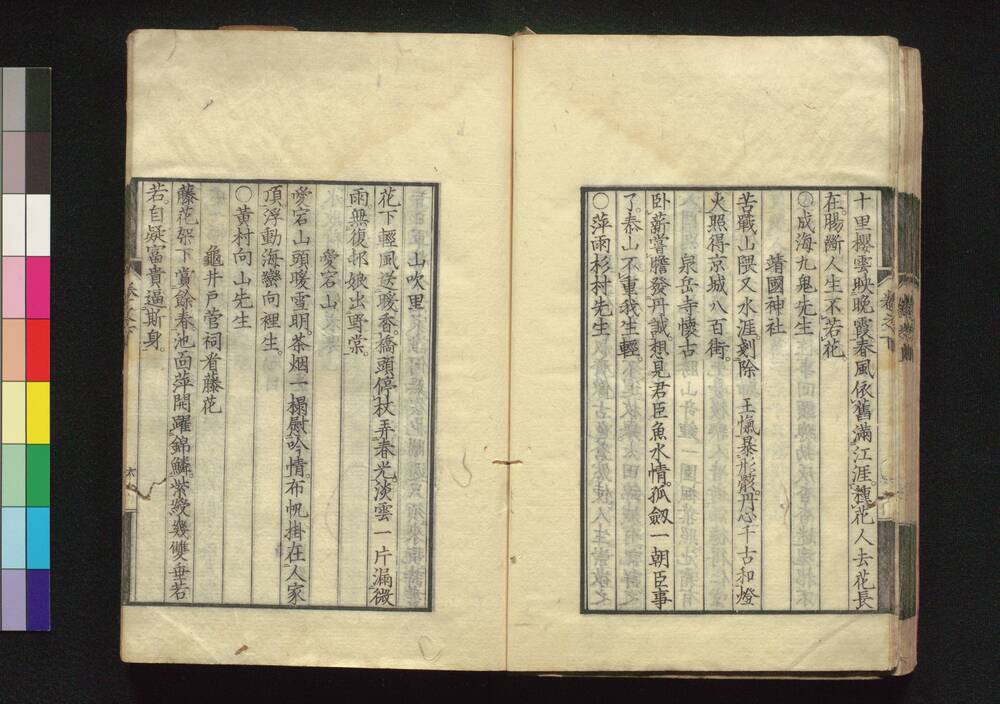 十里櫻雲映晚霞。春風依舊滿江涯。種花人去花長
在。腸斷人生不若花
〇成海九鬼先生
靖國神社
苦戰山隈又水涯。剗除 王愾暴形骸。丹心千古和燈
火。照得京城八百街。
泉岳寺懷古
臥薪嘗膽發丹誠。想見君臣魚水情。孤劔一朝臣事
了。泰山不重我生輕
〇萍雨杉村先生
山吹里
花下輕風送暖香。橋頭停杖弄春光。淡雲一片漏微
雨。無復邨娘出野棠。
愛宕山
愛宕山頭暖雪明。茶烟一榻慰吟情。布帆掛在人家
頂。浮動海蠻向裡生。
〇黃村向山先生
龜井戶菅祠看藤花
藤花架下賞餘春。池面萍開躍錦鱗。紫綬幾雙垂若
若。自疑富貴逼斯身。
卷之下
六